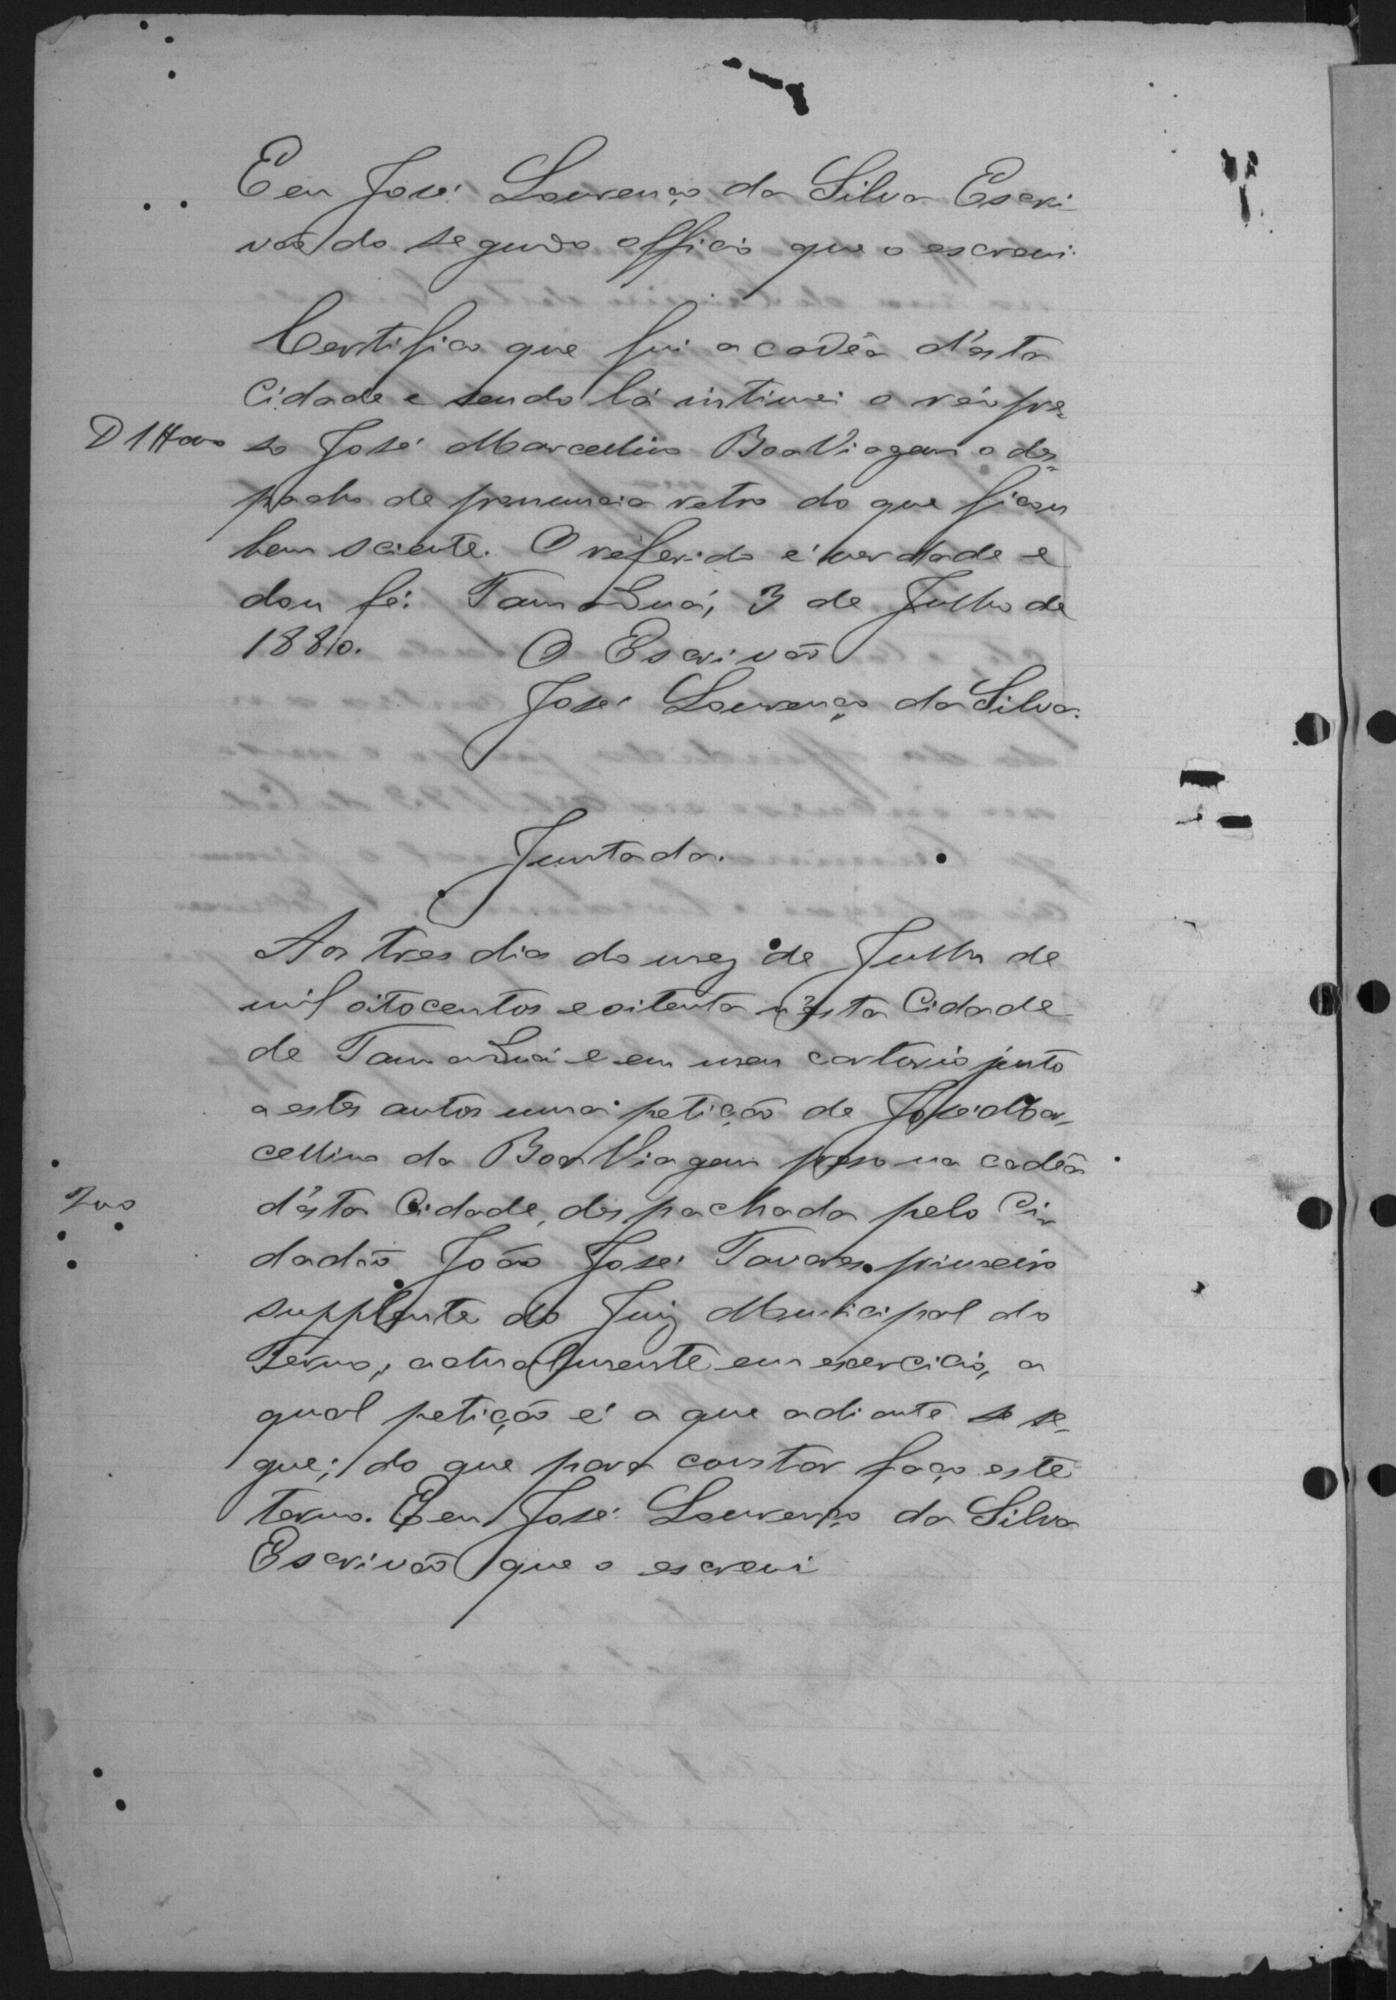 E eu José Lourenço da Silva Escri
vão do segundo officio que o escrevi.
Certifico que fui a cadêa d'esta
Cidade e sendo lá intimei o réo pre-
so José Marcellino Boa Viagem o des-
pacho de pronuncia retro do que ficou
bem sciente. O referido é verdade e
dou fé. Tamanduá, 3 de Julho de
1880. O Escrivão
José Lourenço da Silva.
Juntada.
Aos tres dias do mez de Julho de
mil oitocentos e oitenta n'esta Cidade
de Tamanduá e em meu cartorio junto
a estes autos uma petição de José Mar-
cellino da Boa Viagem preso na cadêa
d'esta Cidade, despachada pelo Ci-
dadão João José Tavares primeiro
supplente do Juiz Municipal do
Termo, actualmente em exercicio, a
qual petição é a que adiante se se-
gue; do que para constar faço este
termo. E eu José Lourenço da Silva
Escrivão que o escrevi